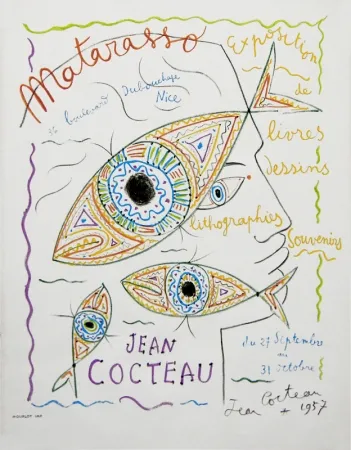 Matarasso
Exposition
de
livres
Dessins
lithographies
Souvenirs
boulevard
Dubouchage
Nice
JEAN
COCTEAU
du 27 Septembre
au
31 octobre
Jean Cocteau
1957